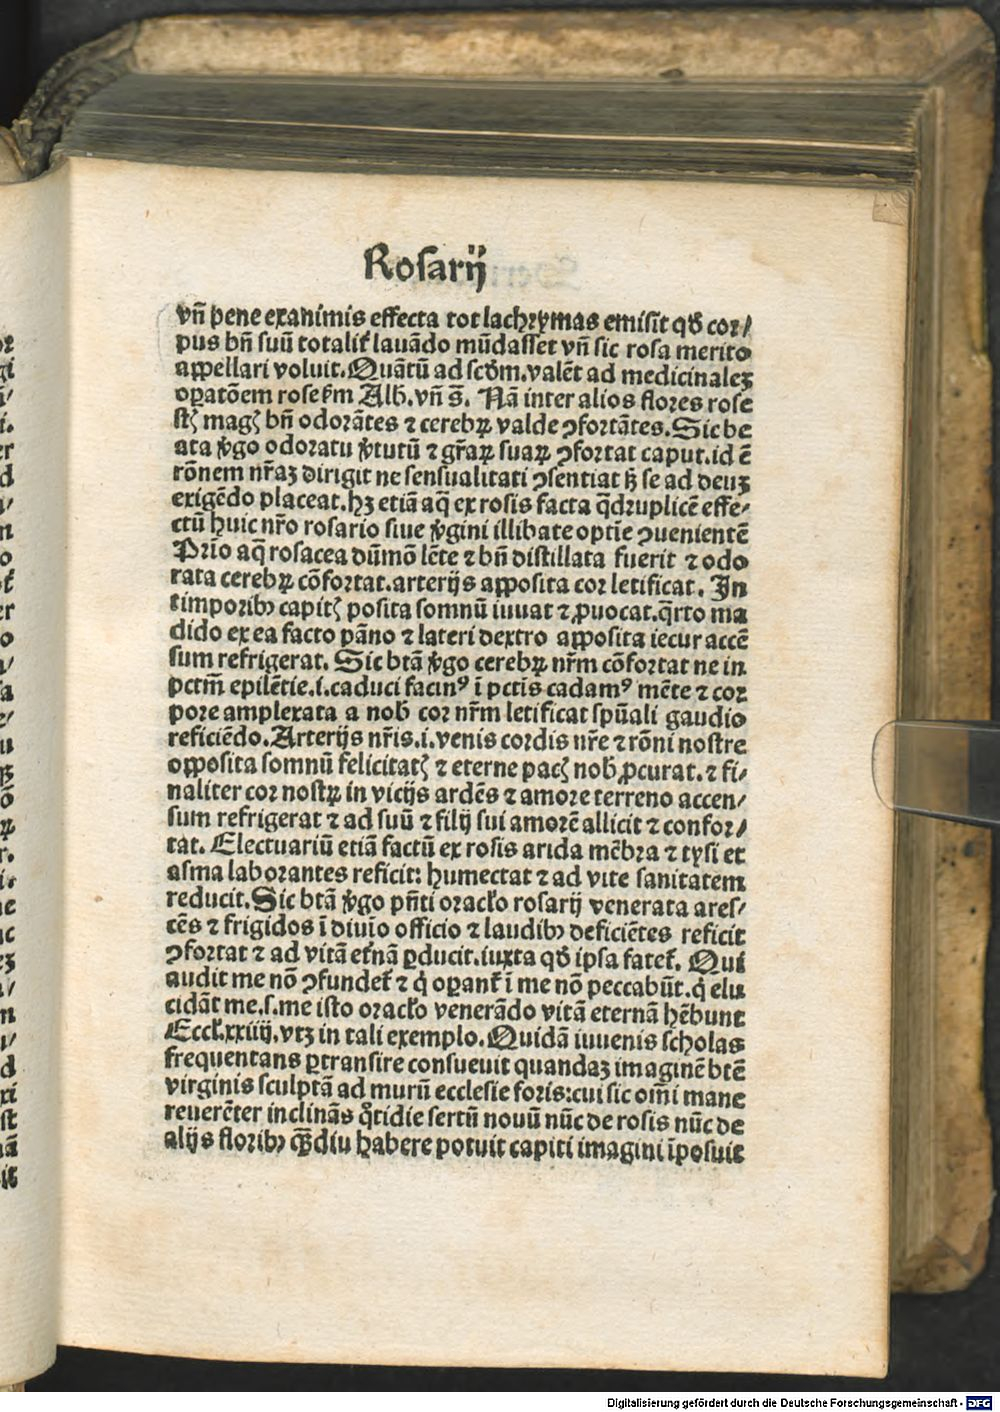 Rosarij
vñ pene exanimis effecta tot lachrymas emisit qđ cor/
pus bñ suũ totalit̃ lauãdo mũdasset vñ sic rosa merito
appellari voluit. Quãtũ ad scđm. valẽt ad medicinalez
oꝑatõem rose ẜm Alb̃. vñ s̃. Nã inter alios flores rose
stꝫ magꝭ bñ odorãtes ⁊ cerebꝝ valde ꝯfortãtes. Sic be
ata v̾go odoratu v̾tutũ ⁊ gr̃aꝝ suaꝝ ꝯfortat caput. id ẽ
rõnem nr̃aꝫ dirigit ne sensualitati ꝯsentiat sꝫ se ad deuꝫ
exigẽdo placeat. hꝫ etiã aq̃ ex rosis facta q̃druplicẽ effe/
ctũ huic nr̃o rosario siue v̾gini illibate optĩe ꝯuenientẽ
Prĩo aq̃ rosacea dũmõ lẽte ⁊ bñ distillata fuerit ⁊ odo
rata cerebꝝ cõfortat. arterijs apposita cor letificat. In
timporibꝫ capitꝭ posita somnũ iuuat ⁊ ꝓuocat. q̃rto ma
dido ex ea facto pãno ⁊ lateri dextro apposita iecur accẽ
sum refrigerat. Sic btã v̾go cerebꝝ nr̃m cõfortat ne in
pctm̃ epilẽtie .i. caduci facinꝰ ĩ pctĩs cadamꝰ mẽte ⁊ cor
pore amplexata a nob̃ cor nr̃m letificat spũali gaudio
reficiẽdo. Arterijs nr̃is .i. venis cordis nr̃e ⁊ rõni nostre
opposita somnũ felicitatꝭ ⁊ eterne pacꝭ nob̃ ꝓcurat. ⁊ fi/
naliter cor nostꝝ in vicijs ardẽs ⁊ amore terreno accen/
sum refrigerat ⁊ ad suũ ⁊ filij sui amorẽ allicit ⁊ confor/
tat. Electuariũ etiã factũ ex rosis arida mẽbra ⁊ tysi et
asma laborantes reficit: humectat ⁊ ad vite sanitatem
reducit. Sic btã v̾go pñti oracl̾o rosarij venerata ares/
cẽs ⁊ frigidos ĩ diuĩo officio ⁊ laudibꝫ deficiẽtes reficit
ꝯfortat ⁊ ad vitã et̾nã ꝑducit. iuxta qđ ipsa fatet̃. Qui
audit me nõ ꝯfundet̃ ⁊ q̇ oꝑant̃ ĩ me nõ peccabũt. q̇ elu
cidãt me .s. me isto oracl̾o venerãdo vitã eternã hẽbunt
Eccl̾. xxiiij. vtꝫ in tali exemplo. Quidã iuuenis scholas
frequentans ꝑtransire consueuit quandaꝫ imaginẽ btẽ
virginis sculptã ad murũ ecclesie foris: cui sic om̃i mane
reuerẽter inclinãs q̊tidie sertũ nouũ nũc de rosis nũc de
alijs floribꝫ qꝫdiu habere potuit capiti imagini ĩposuit
Digitalisierung gefördert durch die Deutsche Forschungsgemeinschaft - DFG